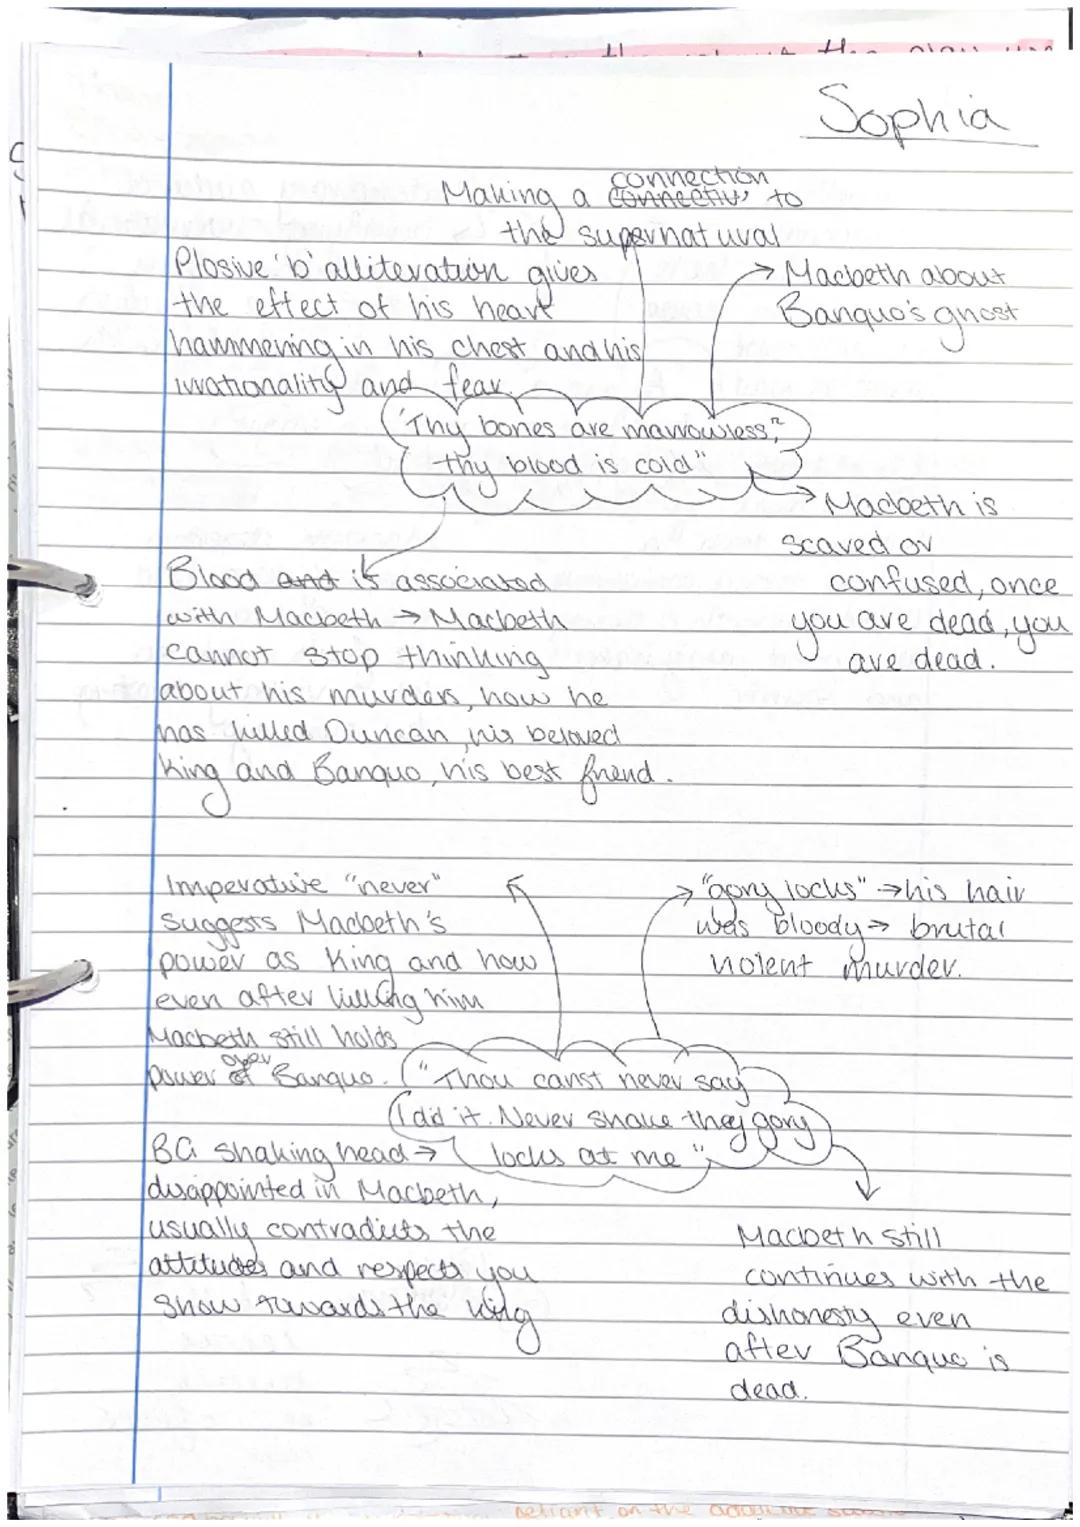 Sophia
connection
Making a connectiv to
the supernatural
Plosive 'b' alliteration gives
the effect of his heart
hammering in his chest and his
irrationality and fear.
Macbeth about
Banquo's ghost
'Thy bones are marrowless,"
thy blood is cold"
Macbeth is
scared or
confused, once
you are dead, you
are dead.
Blood and is associated
with Macbeth → Macbeth
cannot stop thinking
about his murders, how he
has killed Duncan, his beloved
King and Banquo, his best friend.
Imperative "never"
suggests Macbeth's
power as King and how
even after killing him
Macbeth still holds
over
power of Banquo.
→ "gory locks" → his hair
was bloody → brutal
violent murder.
"Thou canst never say
I did it. Never shake they gory
locks at me"
BG shaking head →
disappointed in Macbeth,
usually contradicts the
attitudes and respects you
show towards the king
Macbeth still
continues with the
dishonesty even
after Banquo is
dead.
reliant on the